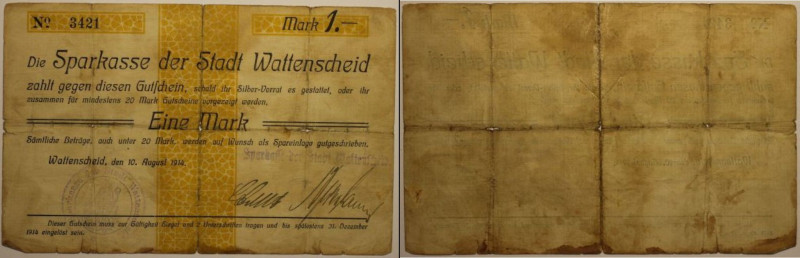 No 3421 Mark 1.—
Die Sparkasse der Stadt Wattenscheid
zahlt gegen diesen Gutschein, sobald ihr Silber-Vorrat es gestattet, oder ihr
zusammen für mindestens 20 Mark Gutscheine vorgezeigt werden,
Eine Mark
Sämtliche Beträge, auch unter 20 Mark, werden auf Wunsch als Spareinlage gutgeschrieben.
Wattenscheid, den 10. August 1914. Sparkasse der Stadt Wattenscheid
Dieser Gutschein muss zur Gültigkeit Siegel und 2 Unterschriften tragen und bis spätestens 31. Dezember
1914 eingelöst sein.